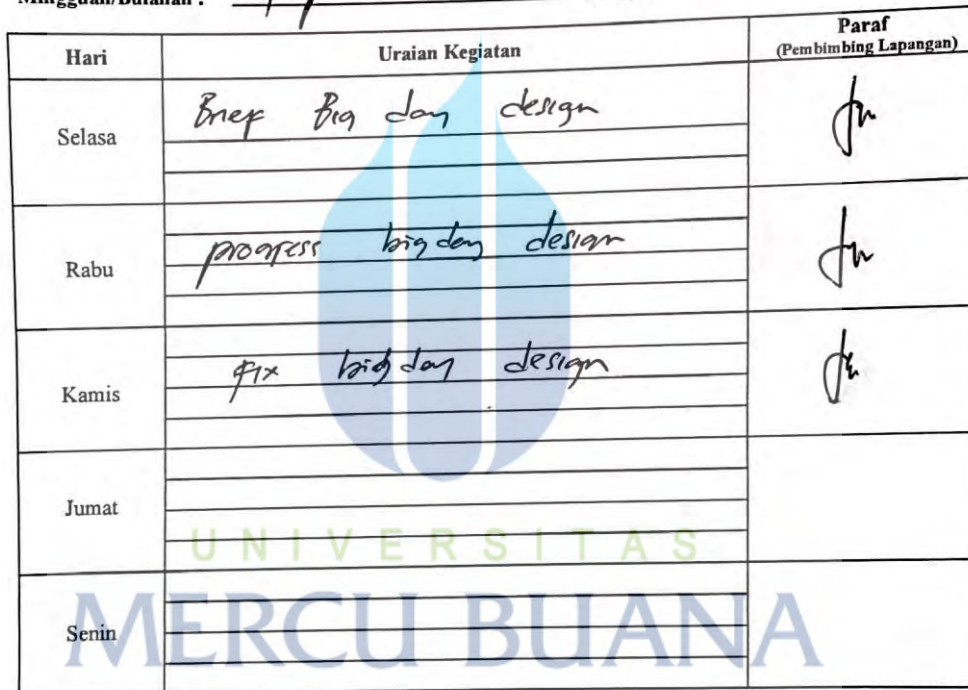 Mingguan/Bulanan :
Hari Uraian Kegiatan Paraf
(Pembimbing Lapangan)
Selasa Brief Big day design
Rabu progress big day design
Kamis Fix big day design
Jumat
UNIVERSITAS
Senin
MERCU BUANA